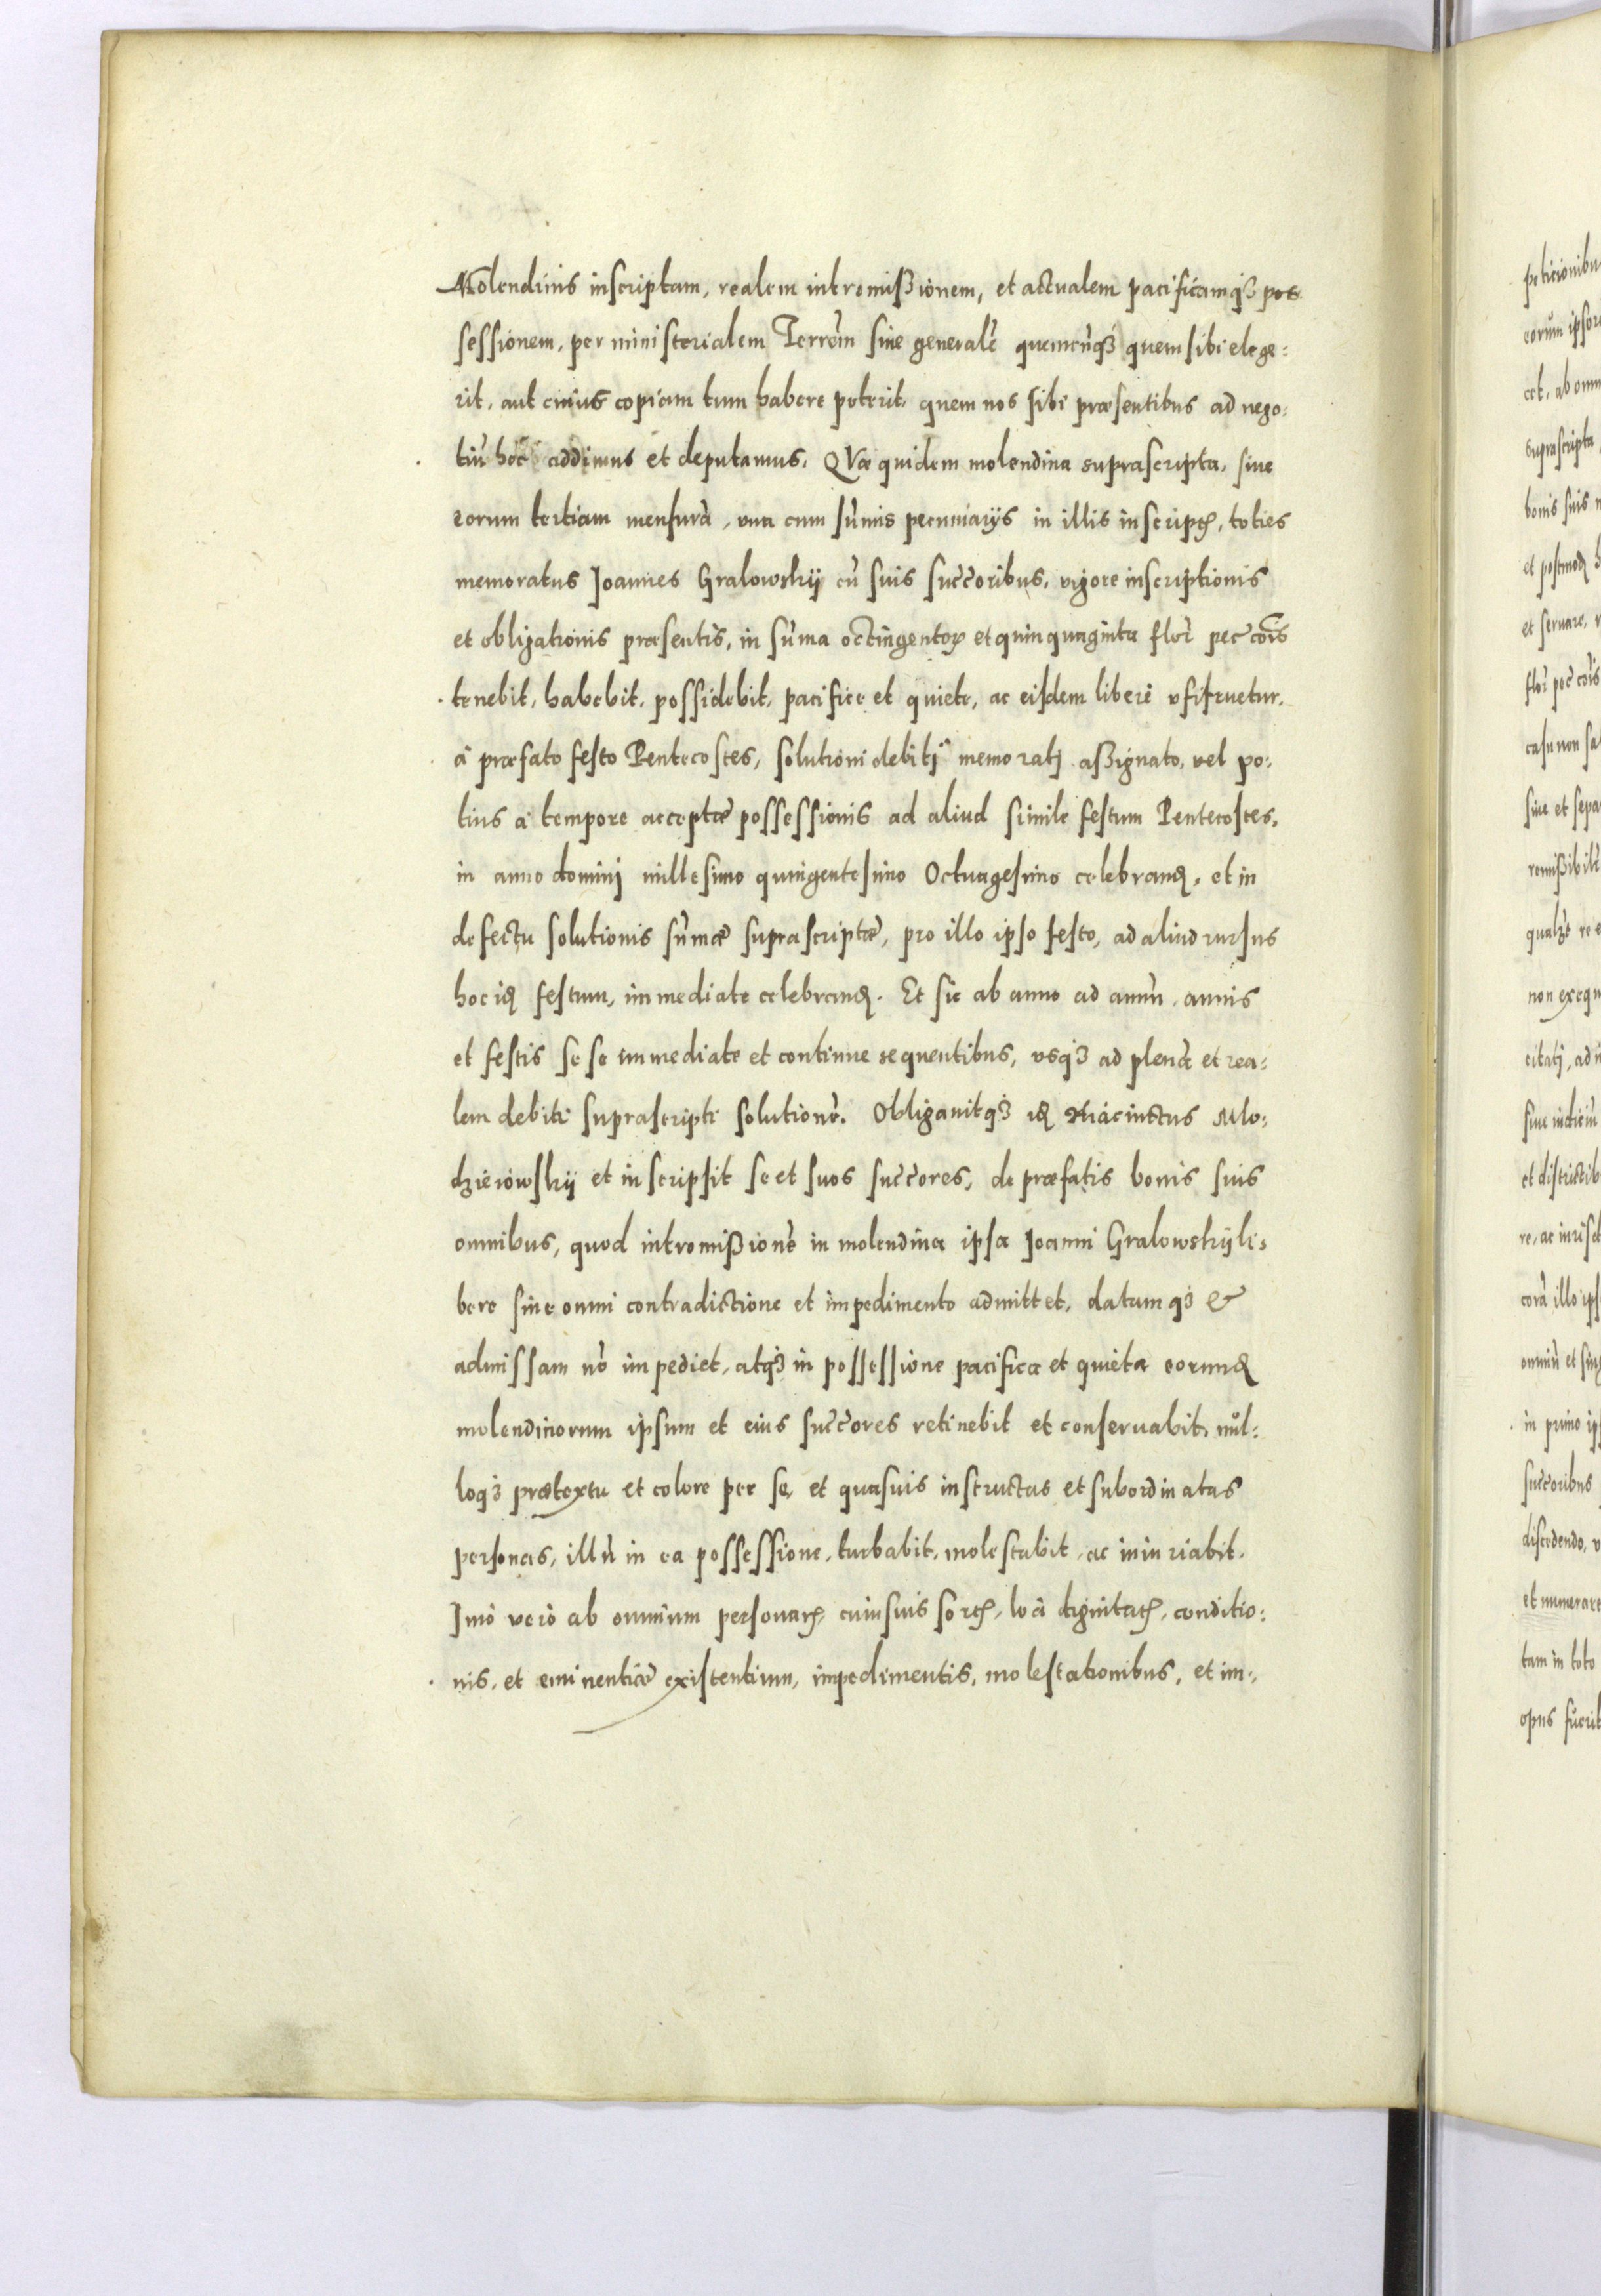 Molendinis inscriptam, realem intromißionem, et actualem pacificamqꝫ pos
sessionem, per ministerialem Terrēm siue generalē quemcūqꝫ quem sibi elege:
rit, aut cuius copiam tum habere poterit, quem nos sibi præsentibus ad nego:
tiū hoc addimus et deputamus. QVæ quidem molendina suprascripta, siue
eorum tertiam mensurā, vna cum sum̄is pecuniarijs in illis inscriptꝭ, toties
memoratus Joannes Gralowskij cū suis succ̄oribus, vigore inscriptionis
et obligationis præsentis, in sum̄a octingentoꝝ et quinquaginta flor̄ pec̄ cōis
tenebit, habebit, possidebit, pacifice et quiete, ac eisdem liberè vsufruetur.
à præfato festo Pentecostes, solutioni debitj memoratj aßignato, vel po:
tius à tempore acceptæ possessionis ad aliud simile festum Pentecostes,
in anno dominj millesimo quingentesimo Octuagesimo celebranꝺ, et in
defectu solutionis sum̄æ suprascriptæ, pro illo ipso festo, ad aliud rursus
hoc iꝺ festum, immediate celebranꝺ. Et sic ab anno ad annū, annis
et festis se se immediate et continue sequentibus, vsqꝫ ad plenā et rea:
lem debiti suprascripti solutionē. Obligauitqꝫ iꝺ Hiacinctus Mlo:
dzieiowskij et inscripsit se et suos succ̄ores, de præfatis bonis suis
omnibus, quod intromißionē in molendina ipsa Joanni Gralowskij li:
bere sine omni contradictione et impedimento admittet, datamqꝫ &
admissam nō impediet, atqꝫ in possessione pacifica et quieta eorunꝺ
molendinorum ipsum et eius succ̄ores retinebit et conseruabit, nul:
loqꝫ prætextu et colore per se, et quasuis instructas et subordinatas
personas, illū in ea possessione, turbabit, molestabit, ac iniuriabit.
Jmò verò ab omnium personarꝭ cuiusuis sortꝭ, loci dignitatꝭ, conditio:
nis, et eminentiæ existentium, impedimentis, molestationibus, et im: